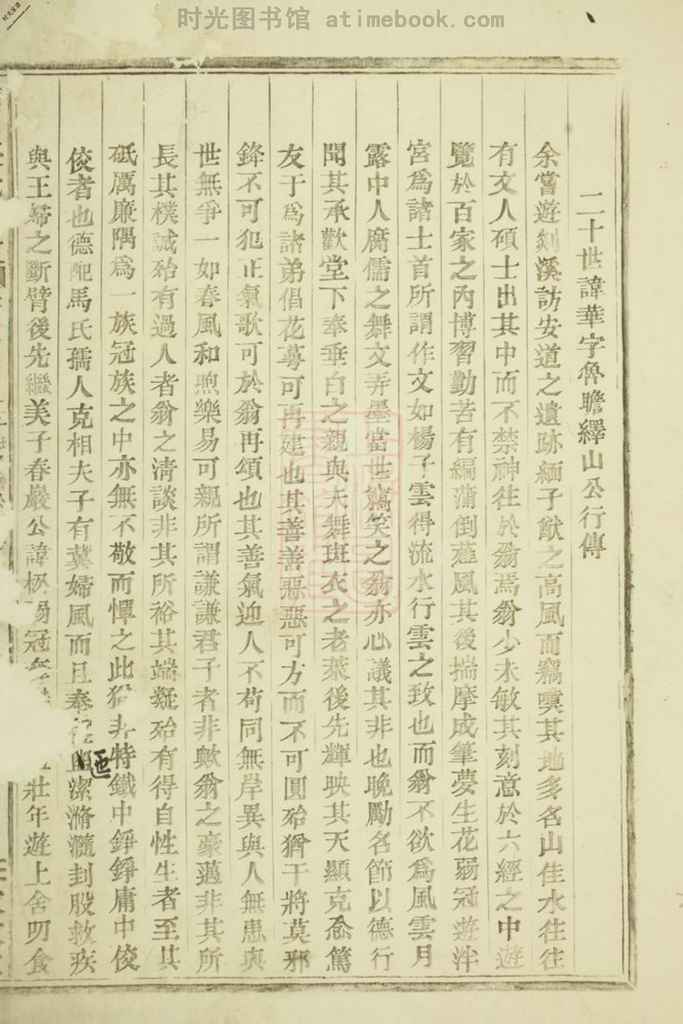 时光图书馆 atimebook.com
二十世諱華字魯瞻繹山公行傳
余嘗遊剡溪訪安道之遺跡緬子猷之高風而竊嘆其地多名山佳水往往
有文人碩士出其中而不禁神往於翁焉翁少末敏其刻意於六經之中遊
覽於百家之內博習勤苦有編蒲倒薤風其後揣摩成筆夢生花弱冠遊泮
宮為諸士首所謂作文如楊子雲得流水行雲之致也而翁不欲為風雲月
露中人腐儒之舞文弄墨當世竊笑之翁亦心議其非也晚勵名節以德行
聞其承歡堂下奉垂白之親與天舞斑衣之老萊後先輝映其天顯克念篤
友于為諸弟倡花萼可再建也其善善惡惡可方而不可圓殆猶干將莫邪
鋒不可犯正氣歌可於翁再頌也其善氣迎人不苟同無岸異與人無患與
世無爭一如春風和煦樂易可親所謂謙謙君子者非歟翁之豪邁非其所
長其樸誠殆有過人者翁之清談非其所裕其端凝殆有得自性生者至其
砥厲廉隅為一族冠族之中亦無不敬而憚之此猶非特鐵中錚錚庸中佼
佼者也德配馬氏孺人克相夫子有冀婦風而且奉潔滌瀡封股救疾
與王婦之斷臂後先繼美子春巖公諱楊冠壯年遊上舍明食